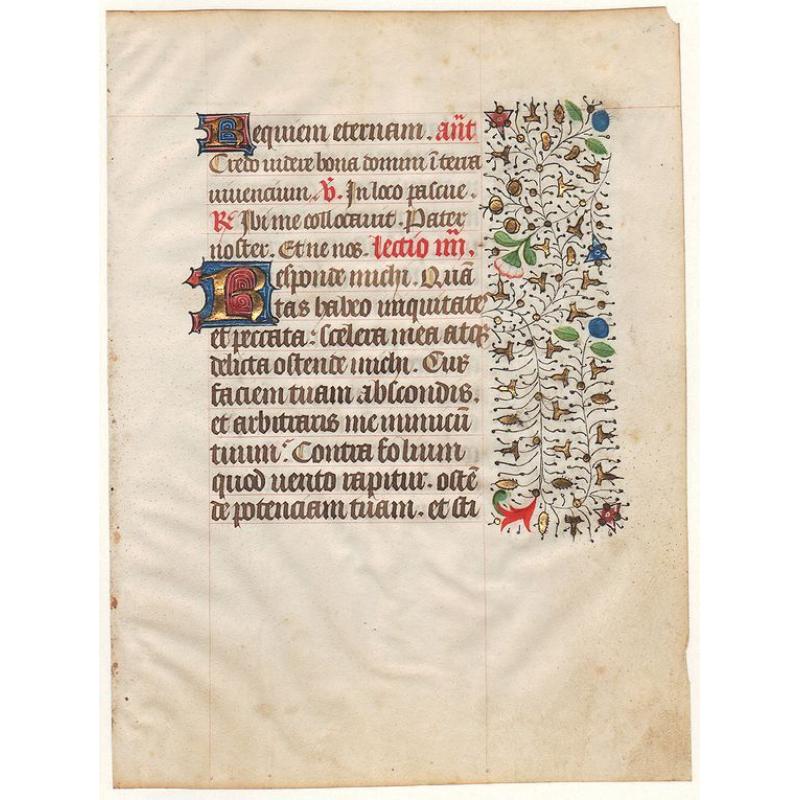 Requiem eternam. an̄t
Credo videre bona domini ī terra
viuencium. V. In loco pascue.
R̃ Ibi me collocauit. Pater
noster. Et ne nos. lectio iiij.
Responde michi. Quā
tas habeo iniquitates
et peccata: scelera mea atqꝫ
delicta ostende michi. Cur
faciem tuam abscondis.
et arbitraris me inimicū
tuum: Contra folium
quod uento rapitur. ostē
de potenciam tuam. et sti